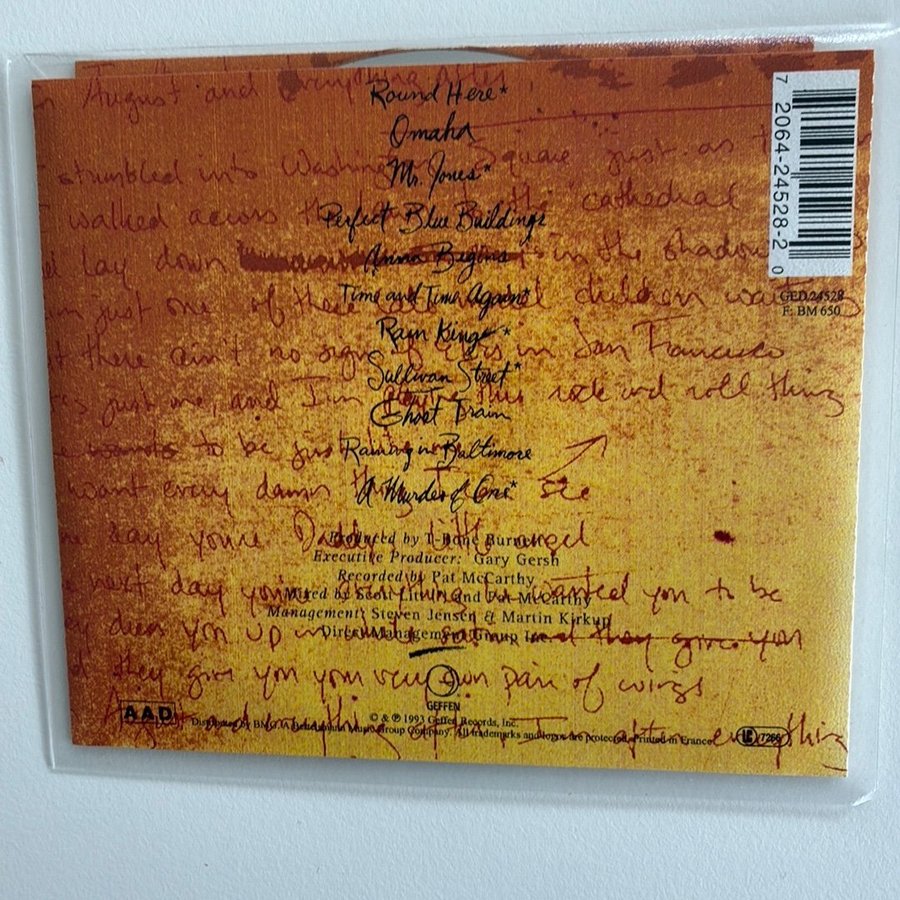 August and Everything After
Round Here*
Omaha
stumbled into Washington Square just as the
Mr. Jones*
walked across the cathedral
Perfect Blue Buildings
lay down in the shadow
Anna Begins
just one of the children waiting
Time and Time Again*
Rain King*
there ain't no sign of in San Francisco
Sullivan Street*
just me, and I'm this rock and roll thing
Ghost Train
wants to be just
Raining in Baltimore
want every damn thing I see
A Murder of One*
day you're Daddy's little angel
Produced by T-Bone Burnett
Executive Producer: Gary Gersh
Recorded by Pat McCarthy
next day you're wanted you to be
Mixed by Scott Litt and Pat McCarthy
Management: Steven Jensen & Martin Kirkup
dress you up in and they give you
Direct Management Group Inc.
they give you your very own pair of wings
GEFFEN
AAD
© & ℗ 1993 Geffen Records, Inc.
Distributed by BMG /A Bertelsmann Music Group Company. All trademarks and logos are protected. Printed in France.
LC 7266
August and Everything After I after everything
7 2064-24528-2 0
GED 24528
F: BM 650